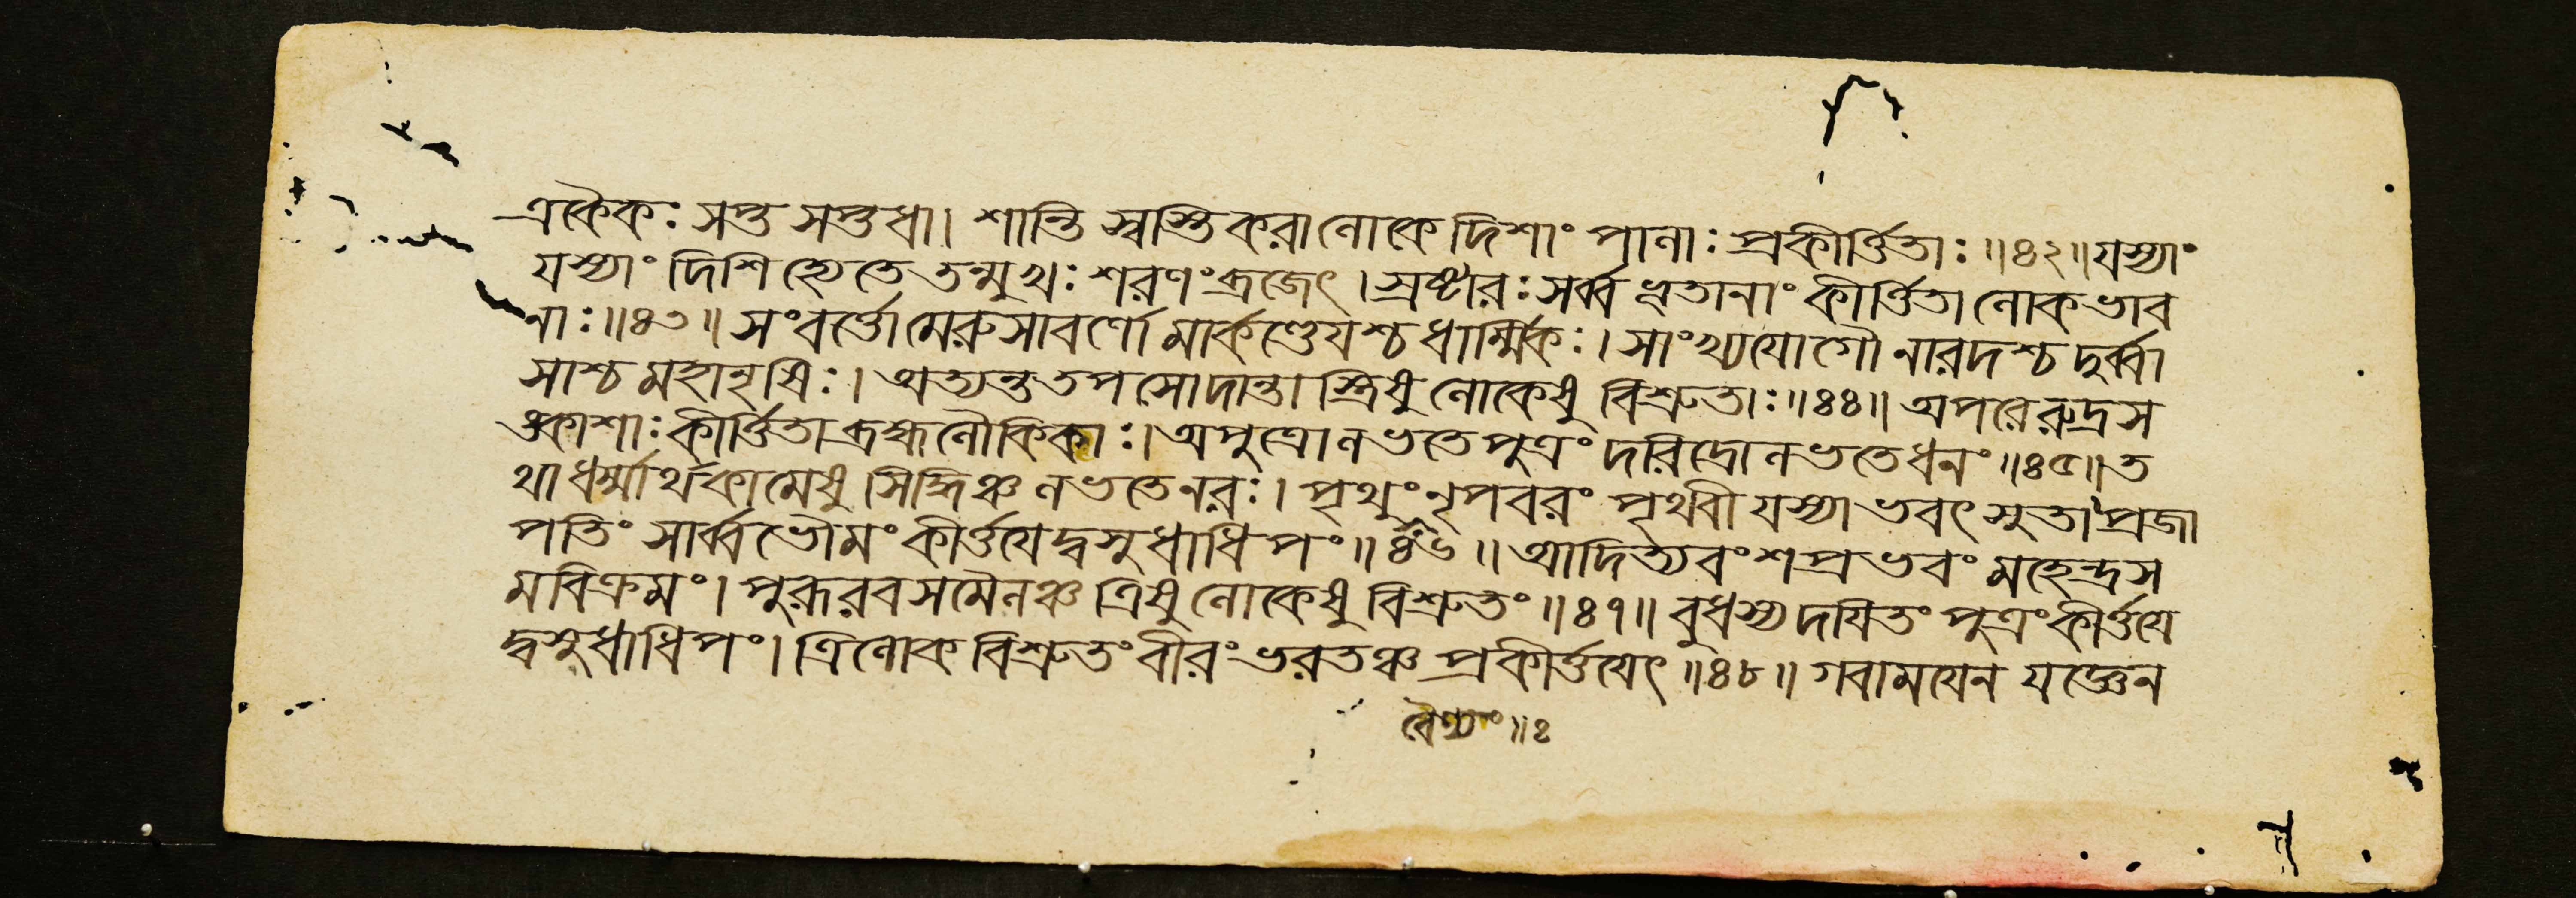 একৈকঃ সপ্ত সপ্তধা। শান্তি স্বস্তিকরালোকে দিশাং পালাঃ প্রকীর্ত্তিতাঃ॥৪২॥যস্যাং
যস্যাং দিশি হ্যেতে তন্মুখঃ শরণং ব্রজেৎ। স্রষ্টারঃ সর্ব্বভূতানাং কীর্ত্তিতা লোকভাব
নাঃ॥৪৩॥ সংবর্ত্তো মেরুসাবর্ণো মার্কণ্ডেযশ্চ ধার্ম্মিকঃ। সাংখ্যযোগৌ নারদশ্চ দুর্ব্বা
সাশ্চ মহানৃষিঃ। অত্যন্ততপসো দান্তা স্ত্রিষু লোকেষু বিশ্রুতাঃ॥৪৪॥ অপরে রুদ্রস
ঙ্কাশাঃ কীর্ত্তিতা ব্রহ্মলৌকিকাঃ। অপুত্রো লভতে পুত্রং দরিদ্রো লভতে ধনং॥৪৫॥ ত
থা ধর্ম্মার্থকামেষু সিদ্ধিঞ্চ লভতে নরঃ। পৃথুং নৃপবরং পৃথ্বী যস্যাভবৎ সুতা প্রজা
পতিং সার্ব্বভৌমং কীর্ত্তযেদ্বসুধাধিপং॥৪৬॥ আদিত্যবংশপ্রভবং মহেন্দ্রস
মবিক্রমং। পুরূরবসমৈলঞ্চ ত্রিষু লোকেষু বিশ্রুতং॥৪৭॥ বুধস্য দযিতং পুত্রং কীর্ত্তযে
দ্বসুধাধিপং। ত্রিলোকবিশ্রুতং বীরং ভরতঞ্চ প্রকীর্ত্তযেৎ॥৪৮॥ গবামযেন যজ্ঞেন